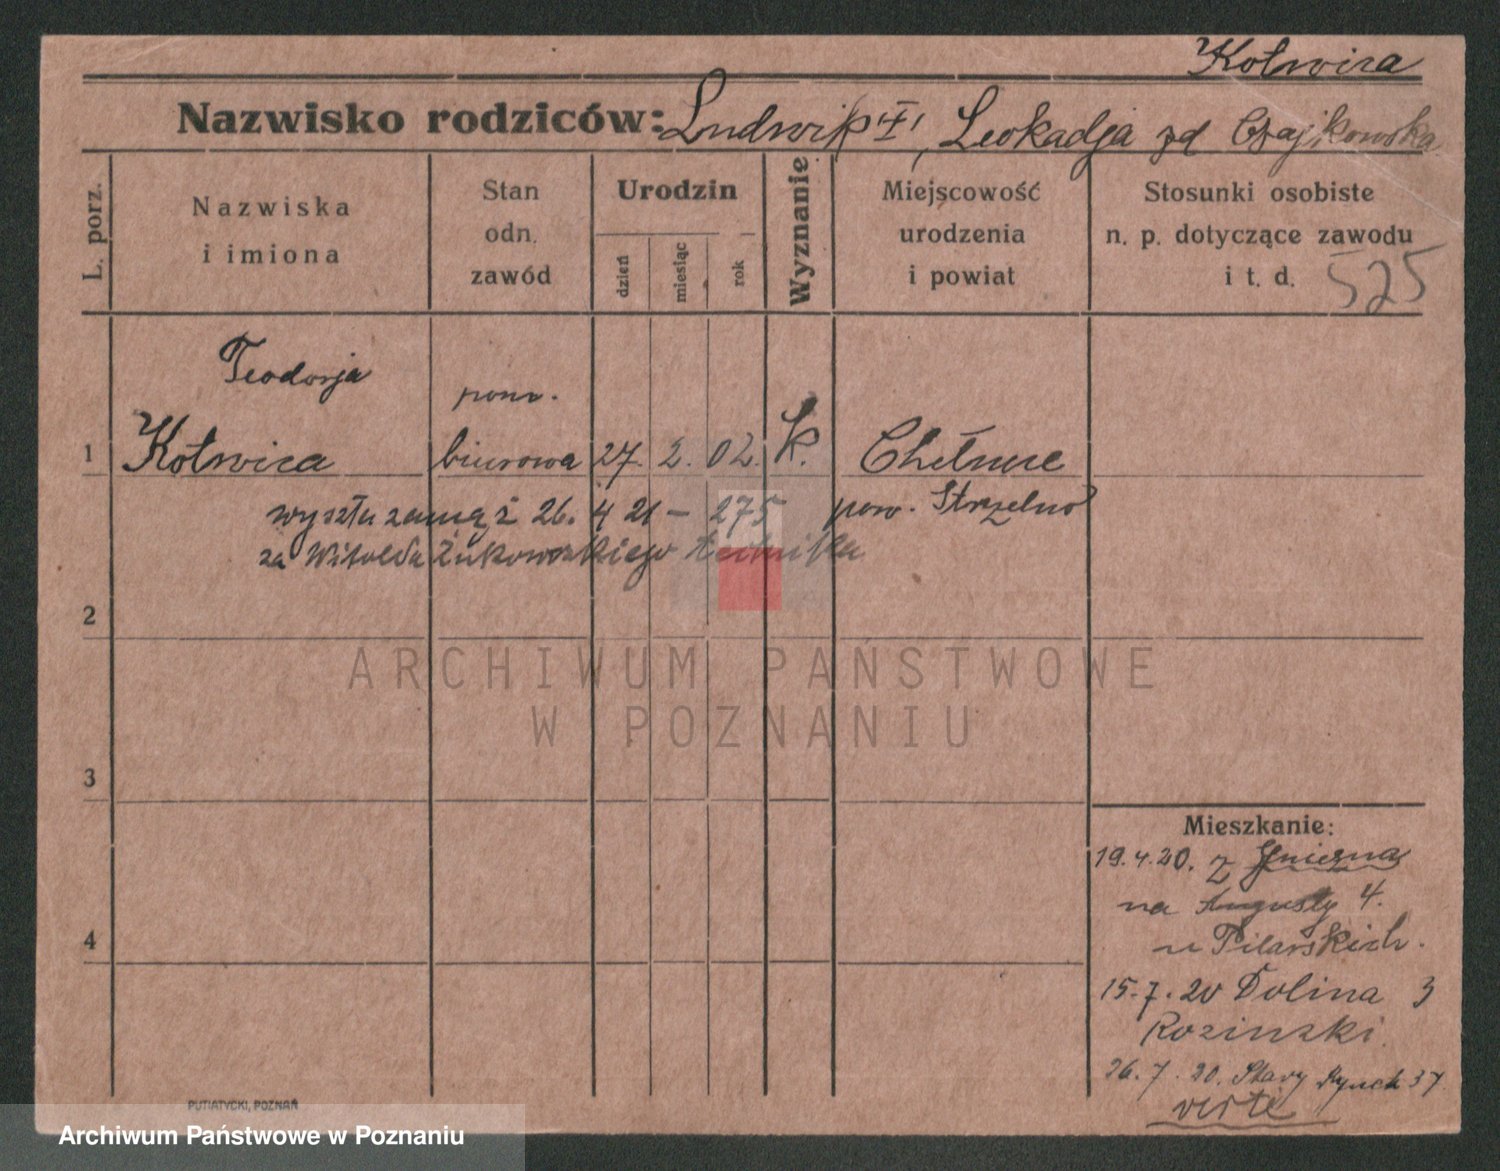 Kotwica
Nazwisko rodziców: Ludwik "†", Leokadja zd Czajkowska
L. porz.
Nazwiska
i imiona
Stan
odn.
zawód
Urodzin
dzień
miesiąc
rok
Wyznanie
Miejscowość
urodzenia
i powiat
Stosunki osobiste
n. p. dotyczące zawodu
i t. d.
525
Teodozja
pom.
1 Kotwica biurowa 27. 2. 02. k. Chełmce
wyszła zamąż 26. 4 21 – 275 pow. Strzelno
za Witolda Żukowskiego technika
2
3
4
Mieszkanie:
19.4.20. z Gniezna
na Augusty 4.
u Pilarskich.
15.7.20 Dolina 3
Rozinski.
26.7.20. Stary Rynek 37
verte
PUTIATYCKI, POZNAŃ
ARCHIWUM PAŃSTWOWE
W POZNANIU
Archiwum Państwowe w Poznaniu